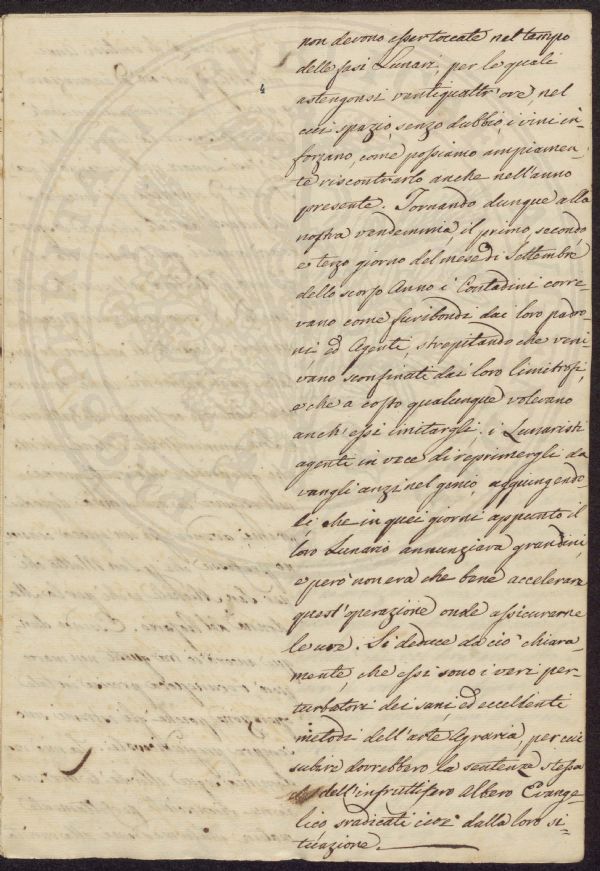 non devono esser toccate nel tempo
delle fasi Lunari, per le quali
4
astengonsi vantiquattr'ore, nel
cui spazio, senzo dubbio, i vini in-
forzano, come possiamo ampiamen-
te riscontrarlo anche nell'anno
presente. Tornando dunque alla
nostra vandemmia, il primo, secondo,
e terzo giorno del mese di Settembre
dello scorso Anno i Contadini corre-
vano come furibondi dai loro padro-
ni ed Agenti, strepitando che veni-
vano sconfinati dai loro limitrofi,
e che a costo qualunque volevano
anch'essi imitargli. i Lunaristi
agenti in vece di reprimergli da
vangli anzi nel genio, aggiungendo-
li, che in quei giorni appunto il
loro Lunario annunziava grandini,
e però non era che bene accelerare
quest'operazione onde assicurarne
le uve. Si deduce da ciò chiara-
mente, che essi sono i veri per-
turbatori dei sani, ed eccellenti
metodi dell'arte Agraria, per cui
subire dovrebbero la sentenza stessa
dell'infruttifero Albero Evange-
lico, sradicati cioè dalla loro si-
tuazione.